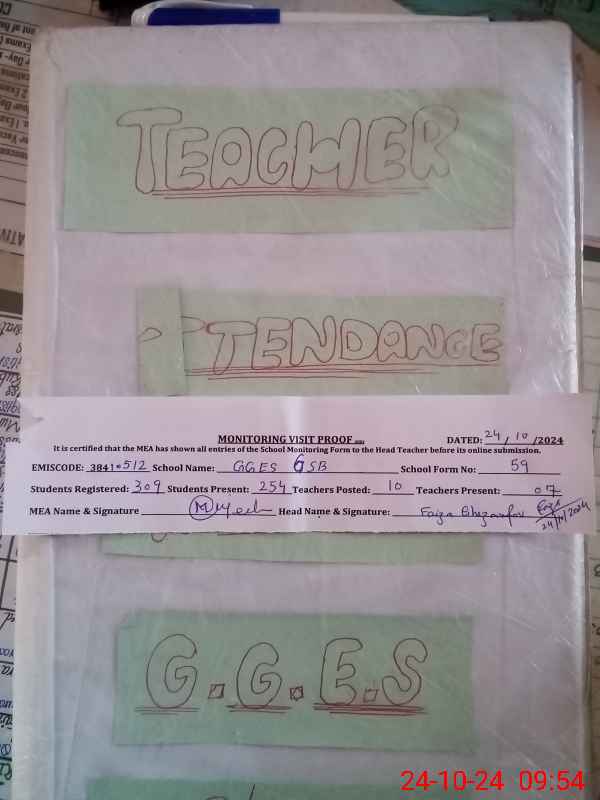 TEACHER
TTENDANCE
MONITORING VISIT PROOF
DATED: 24/10/2024
It is certified that the MEA has shown all entries of the School Monitoring Form to the Head Teacher before its online submission.
EMISCODE: 38410512 School Name: GGES 6 SB School Form No: 59
Students Registered: 309 Students Present: 254 Teachers Posted: 10 Teachers Present: 07
MEA Name & Signature Head Name & Signature: Faiza
24/10/2024
G.G.E.S
24-10-24 09:54